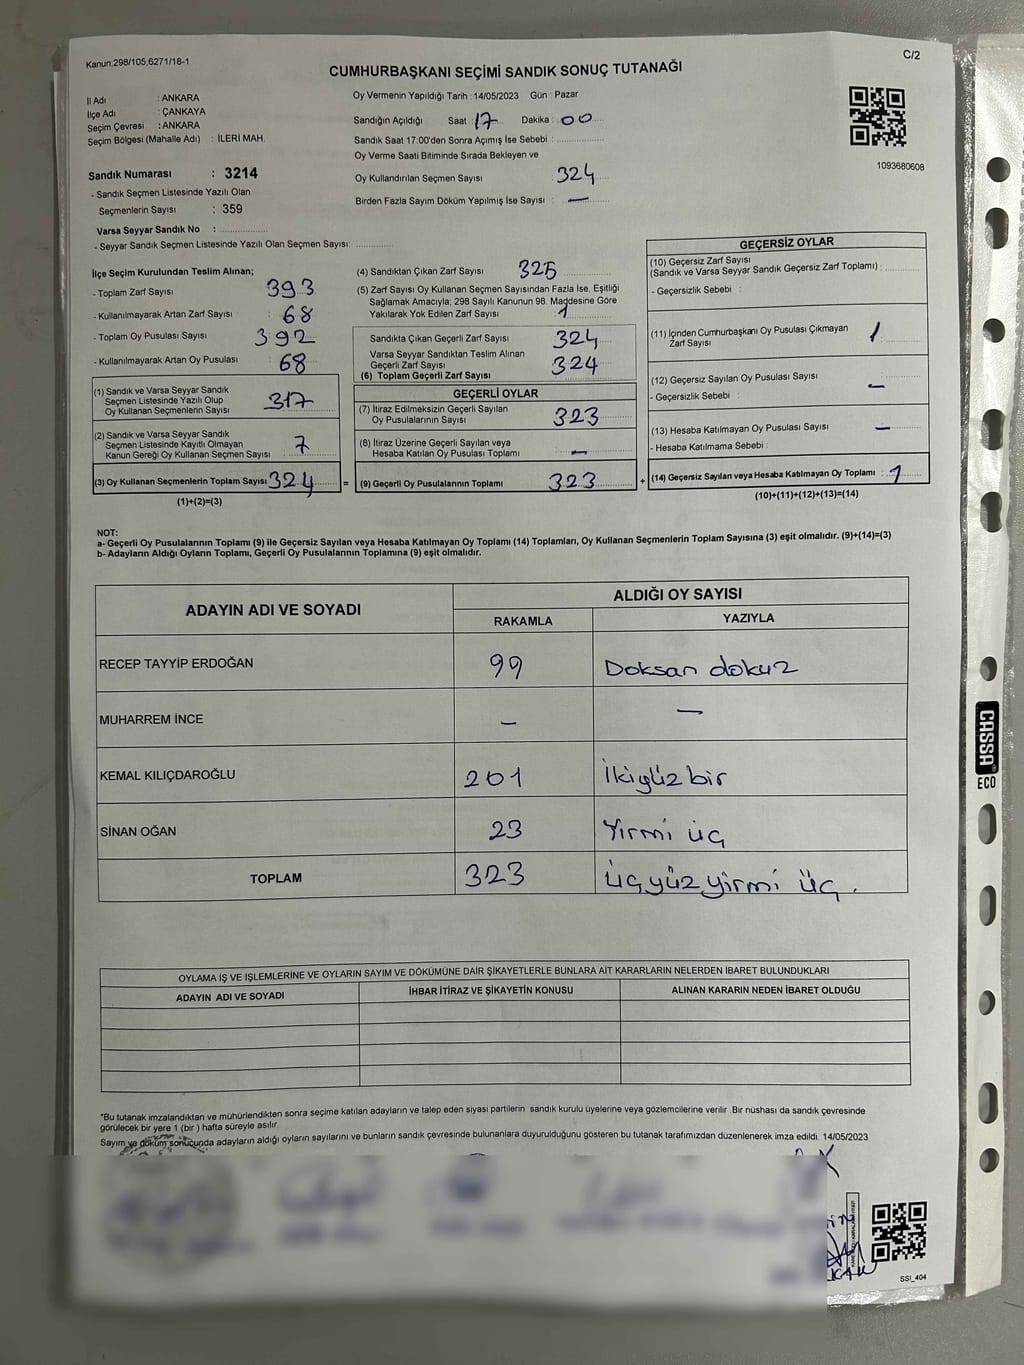 Kanun;298/105,6271/18-1
C/2
CUMHURBAŞKANI SEÇİMİ SANDIK SONUÇ TUTANAĞI
İl Adı : ANKARA
İlçe Adı : ÇANKAYA
Seçim Çevresi : ANKARA
Seçim Bölgesi (Mahalle Adı) : İLERİ MAH.
Sandık Numarası : 3214
- Sandık Seçmen Listesinde Yazılı Olan
Seçmenlerin Sayısı : 359
Varsa Seyyar Sandık No :
- Seyyar Sandık Seçmen Listesinde Yazılı Olan Seçmen Sayısı:
Oy Vermenin Yapıldığı Tarih : 14/05/2023 Gün : Pazar
Sandığın Açıldığı Saat : 17 Dakika : 00
Sandık Saat 17:00'den Sonra Açımış İse Sebebi :
Oy Verme Saati Bitiminde Sırada Bekleyen ve
Oy Kullandırılan Seçmen Sayısı : 324
Birden Fazla Sayım Döküm Yapılmış İse Sayısı : —
1093680608
İlçe Seçim Kurulundan Teslim Alınan;
- Toplam Zarf Sayısı : 393
- Kullanılmayarak Artan Zarf Sayısı : 68
- Toplam Oy Pusulası Sayısı : 392
- Kullanılmayarak Artan Oy Pusulası : 68
(1) Sandık ve Varsa Seyyar Sandık
Seçmen Listesinde Yazılı Olup
Oy Kullanan Seçmenlerin Sayısı : 317
(2) Sandık ve Varsa Seyyar Sandık
Seçmen Listesinde Kayıtlı Olmayan
Kanun Gereği Oy Kullanan Seçmen Sayısı : 7
(3) Oy Kullanan Seçmenlerin Toplam Sayısı: 324
(1)+(2)=(3)
(4) Sandıktan Çıkan Zarf Sayısı 325
(5) Zarf Sayısı Oy Kullanan Seçmen Sayısından Fazla İse, Eşitliği
Sağlamak Amacıyla; 298 Sayılı Kanunun 98. Maddesine Göre
Yakılarak Yok Edilen Zarf Sayısı : 1
Sandıkta Çıkan Geçerli Zarf Sayısı : 324
Varsa Seyyar Sandıktan Teslim Alınan
Geçerli Zarf Sayısı : 324
(6) Toplam Geçerli Zarf Sayısı
GEÇERLİ OYLAR
(7) İtiraz Edilmeksizin Geçerli Sayılan
Oy Pusulalarının Sayısı : 323
(8) İtiraz Üzerine Geçerli Sayılan veya
Hesaba Katılan Oy Pusulası Toplamı : —
= (9) Geçerli Oy Pusulalarının Toplamı : 323
GEÇERSİZ OYLAR
(10) Geçersiz Zarf Sayısı
(Sandık ve Varsa Seyyar Sandık Geçersiz Zarf Toplamı) :
- Geçersizlik Sebebi :
(11) İçinden Cumhurbaşkanı Oy Pusulası Çıkmayan
Zarf Sayısı : 1
(12) Geçersiz Sayılan Oy Pusulası Sayısı : —
- Geçersizlik Sebebi :
(13) Hesaba Katılmayan Oy Pusulası Sayısı : —
- Hesaba Katılmama Sebebi :
+ (14) Geçersiz Sayılan veya Hesaba Katılmayan Oy Toplamı : 1
(10)+(11)+(12)+(13)=(14)
NOT:
a- Geçerli Oy Pusulalarının Toplamı (9) ile Geçersiz Sayılan veya Hesaba Katılmayan Oy Toplamı (14) Toplamları, Oy Kullanan Seçmenlerin Toplam Sayısına (3) eşit olmalıdır. (9)+(14)=(3)
b- Adayların Aldığı Oyların Toplamı, Geçerli Oy Pusulalarının Toplamına (9) eşit olmalıdır.
ADAYIN ADI VE SOYADI ALDIĞI OY SAYISI
RAKAMLA YAZIYLA
RECEP TAYYİP ERDOĞAN 99 Doksan dokuz
MUHARREM İNCE — —
KEMAL KILIÇDAROĞLU 201 İkiyüz bir
SİNAN OĞAN 23 Yirmi üç
TOPLAM 323 Üçyüz yirmi üç.
OYLAMA İŞ VE İŞLEMLERİNE VE OYLARIN SAYIM VE DÖKÜMÜNE DAİR ŞİKAYETLERLE BUNLARA AİT KARARLARIN NELERDEN İBARET BULUNDUKLARI
ADAYIN ADI VE SOYADI İHBAR İTİRAZ VE ŞİKAYETİN KONUSU ALINAN KARARIN NEDEN İBARET OLDUĞU
*Bu tutanak imzalandıktan ve mühürlendikten sonra seçime katılan adayların ve talep eden siyasi partilerin sandık kurulu üyelerine veya gözlemcilerine verilir. Bir nüshası da sandık çevresinde
görülecek bir yere 1 (bir ) hafta süreyle asılır.
Sayım ve döküm sonucunda adayların aldığı oyların sayılarını ve bunların sandık çevresinde bulunanlara duyurulduğunu gösteren bu tutanak tarafımızdan düzenlenerek imza edildi. 14/05/2023
SSI_404
CASSA
ECO